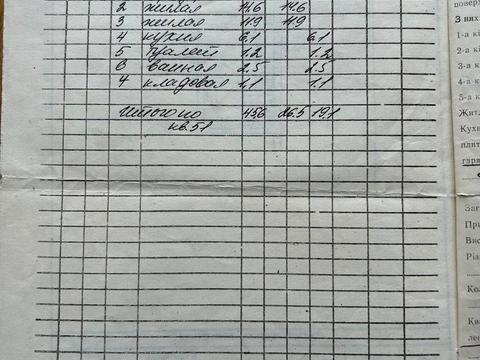 2 жилая 14.6 14.6
3 жилая 11.9 11.9
4 кухня 6.1 6.1
5 туалет 1.2 1.2
6 ванная 2.5 2.5
кладовая 1.1 1.1
Итого по 45,6 26.5 19,1
кв. 51
З них
1-а кі
2-а кі
3-а кі
4-а к
5-а к
Житл
Кухн
плит
гаря
Заг
При
Вис
Різ
Ко
Ква
лен